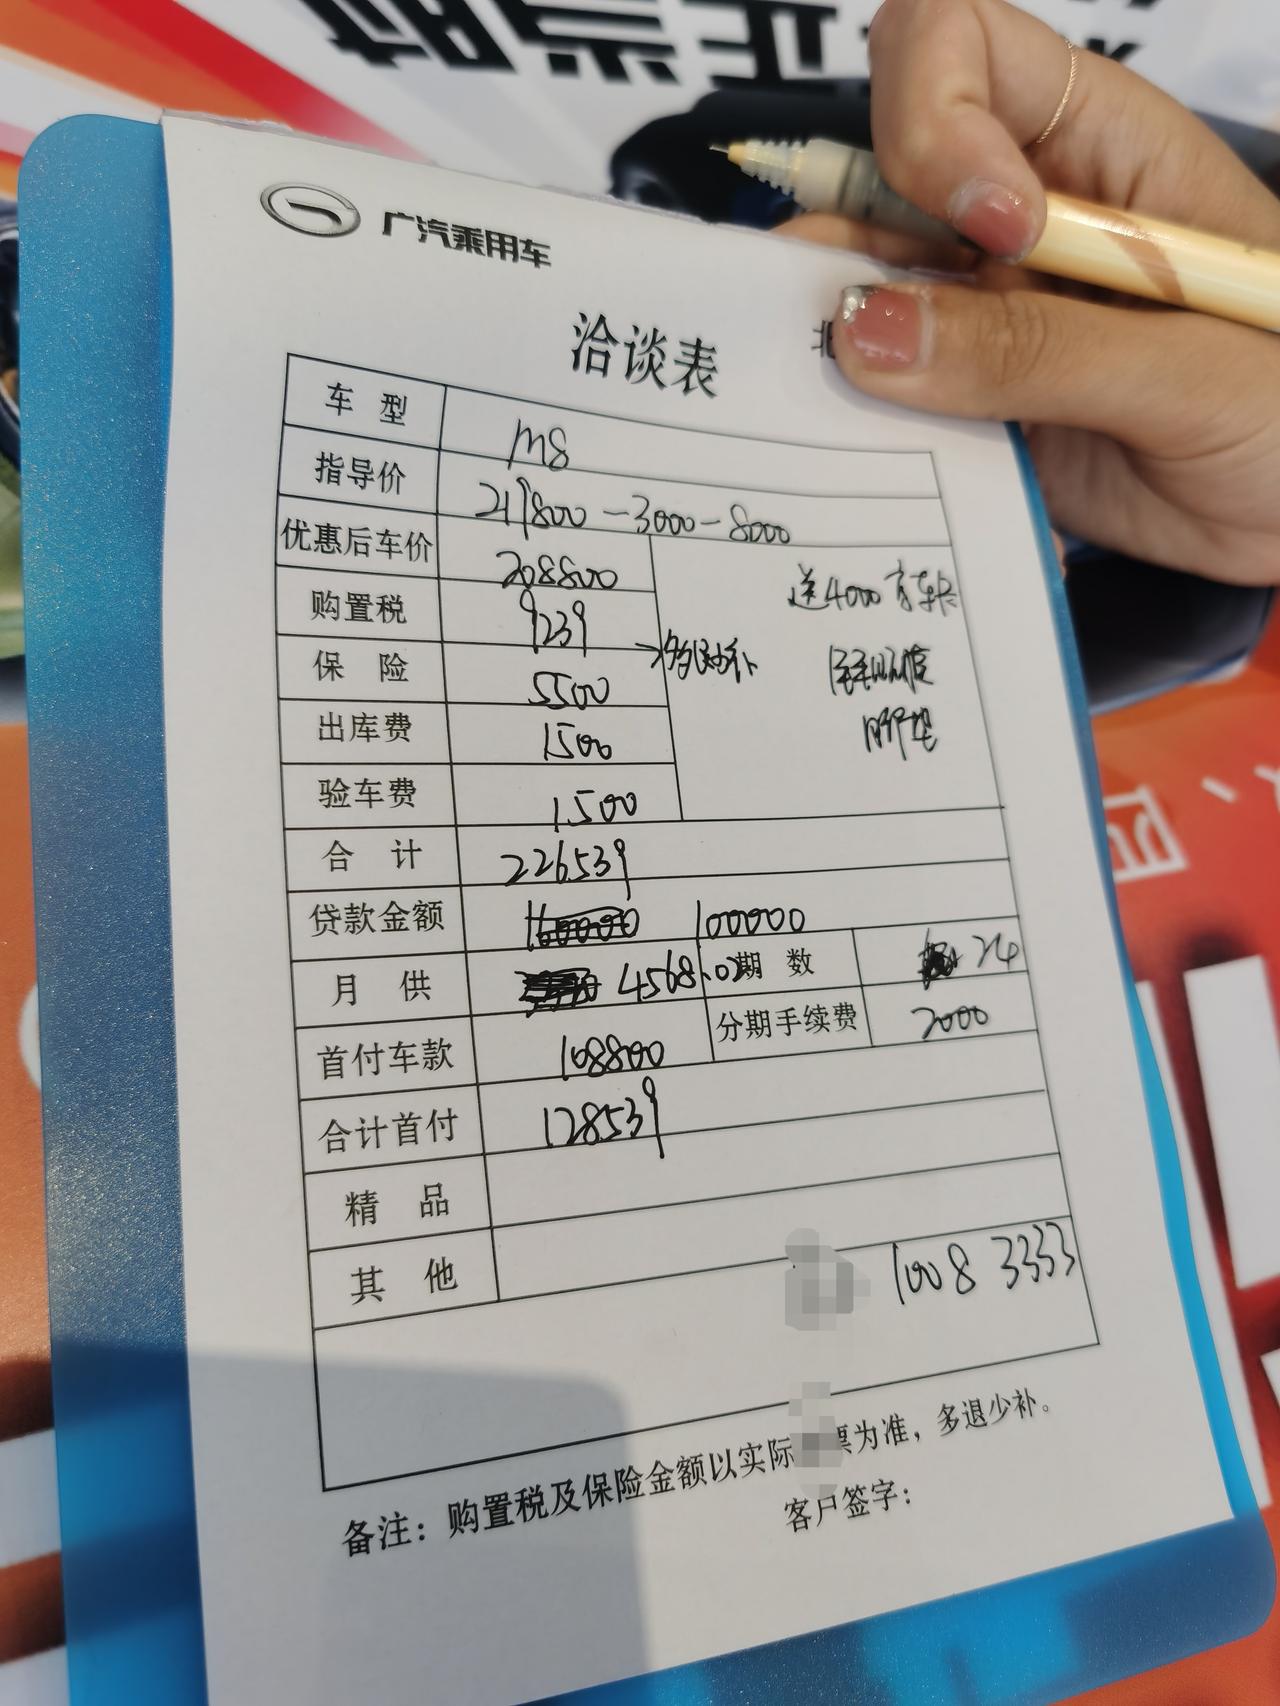 广汽乘用车
洽谈表
北
车型 M8
指导价 219800-3000-8000
优惠后车价 208800
购置税 9239
保险 5500
出库费 1500
验车费 1500
送4000
→多退少补
脚垫
合计 226539
贷款金额 160000 100000
月供 4568.02 期数 24
分期手续费 2000
首付车款 108800
合计首付 128539
精品
其他
1008 3333
备注：购置税及保险金额以实际票为准，多退少补。
客户签字：